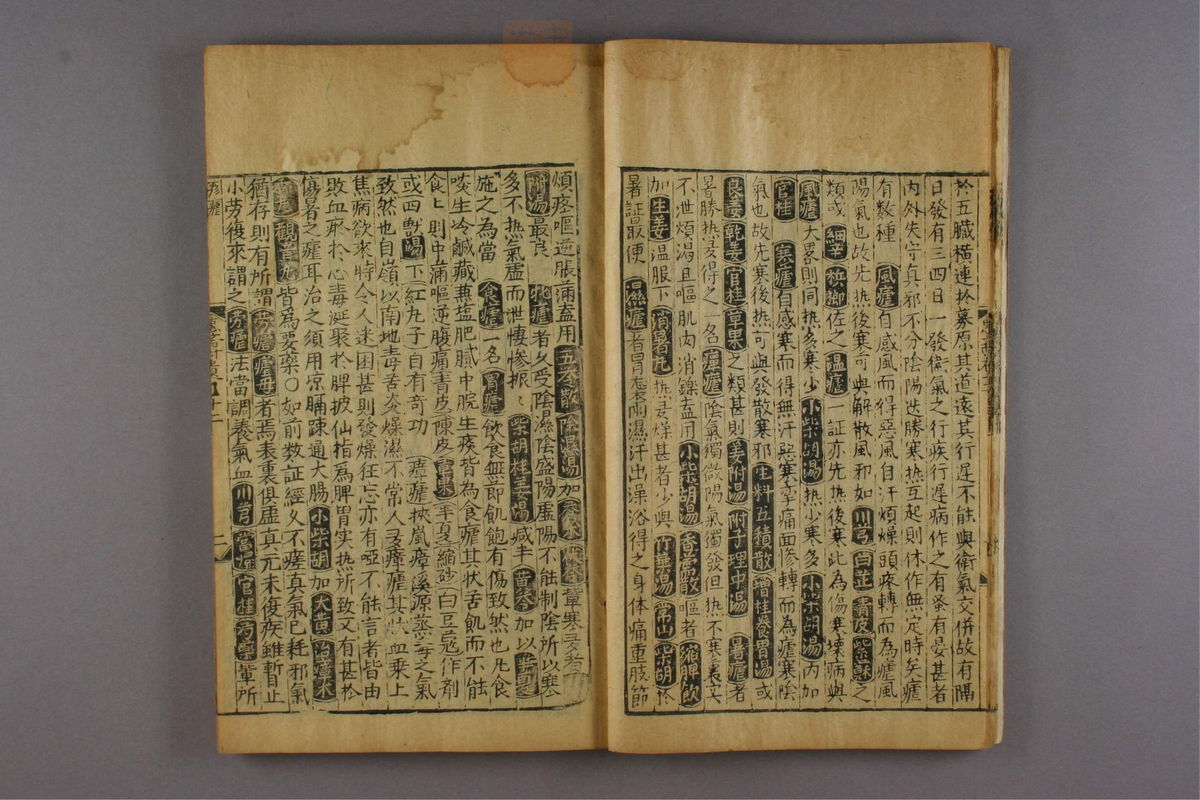 於五臟橫連於募原其道遠其行遅不能與衛氣交併故有隔
日發有三四日一發衛氣之行疾行遅病作之有蚤有晏甚者
内外失守真邪不分陰陽迭勝寒熱互起則休作無定時矣瘧
有数種 風瘧自感風而得惡風自汗煩燥頭疼轉而為瘧風
陽氣也故先热後寒可與解散風邪如川芎白芷青皮紫蘇之
類或細辛梹榔佐之温瘧一証亦先热後寒此為傷寒壞病與
風瘧大畧則同热多寒少小柴胡湯热少寒多小柴胡湯内加
官桂 寒瘧自感寒而得無汗惡寒攣痛面惨轉而為瘧寒陰
氣也故先寒後热可與發散寒邪生料五積散增桂養胃湯或
良姜乾姜官桂草果之類甚則姜附湯附子理中湯 暑瘧者
暑勝热多得之一名癉瘧陰氣獨微陽氣獨發但热不寒裏实
不泄煩渴且嘔肌肉消鑠盍用小柴胡湯香薷散嘔者縮脾飲
加生姜温服下消暑丸热多燥甚者少與竹葉湯常山柴胡於
暑証最便 濕瘧者冒态雨濕汗出澡浴得之身体痛重肢節
煩疼嘔逆脹滿盍用五苓散除濕湯加蒼朮茯苓軰寒多者
附湯最良 牝瘧者久受陰濕陰盛陽虛陽不能制陰所以寒
多不热氣虛而泄悽惨振〻柴胡桂姜湯减半黄芩加以半夏
施之為當 食瘧一名胃瘧飲食無節飢飽有傷致然也凡食
啖生冷鹹藏𩵋塩肥膩中脘生痰皆為食瘧其状舌飢而不能
食〻則中滿嘔逆腹痛青皮陳皮草果半夏縮砂白豆蔻作劑
或四獸湯下紅丸子自有奇功 瘴瘧挾嵐瘴溪源蒸毒之氣
致然也自嶺以南地毒苦炎燥濕不常人多瘴瘧其状血乗上
焦病欲來時令人迷困甚則發燥狂忘亦有啞不能言者皆由
敗血瘀於心毒涎聚於脾披仙指為脾胃实热所致又有甚於
傷暑之瘧耳治之須用凉膈踈通大腸小柴胡加大黄治瘴木
香丸觀音丸皆為要藥○如前数証經久不瘥真氣已耗邪氣
猶存則有所謂勞瘧瘧母者焉表裏俱虛真元未復疾雖暫止
小劳復來謂之劳瘧法當調養氣血川芎當歸官桂芍藥軰所